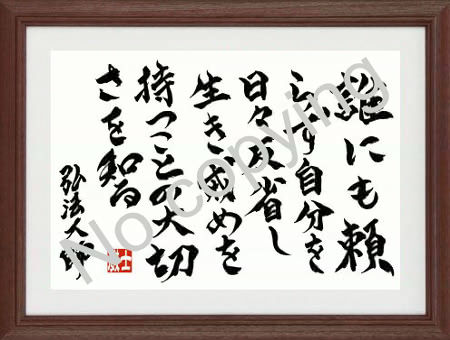 誰にも頼
らず自分を
日々反省し
生き戒めを
持つことの大切
さを知る
弘法大師
No copying